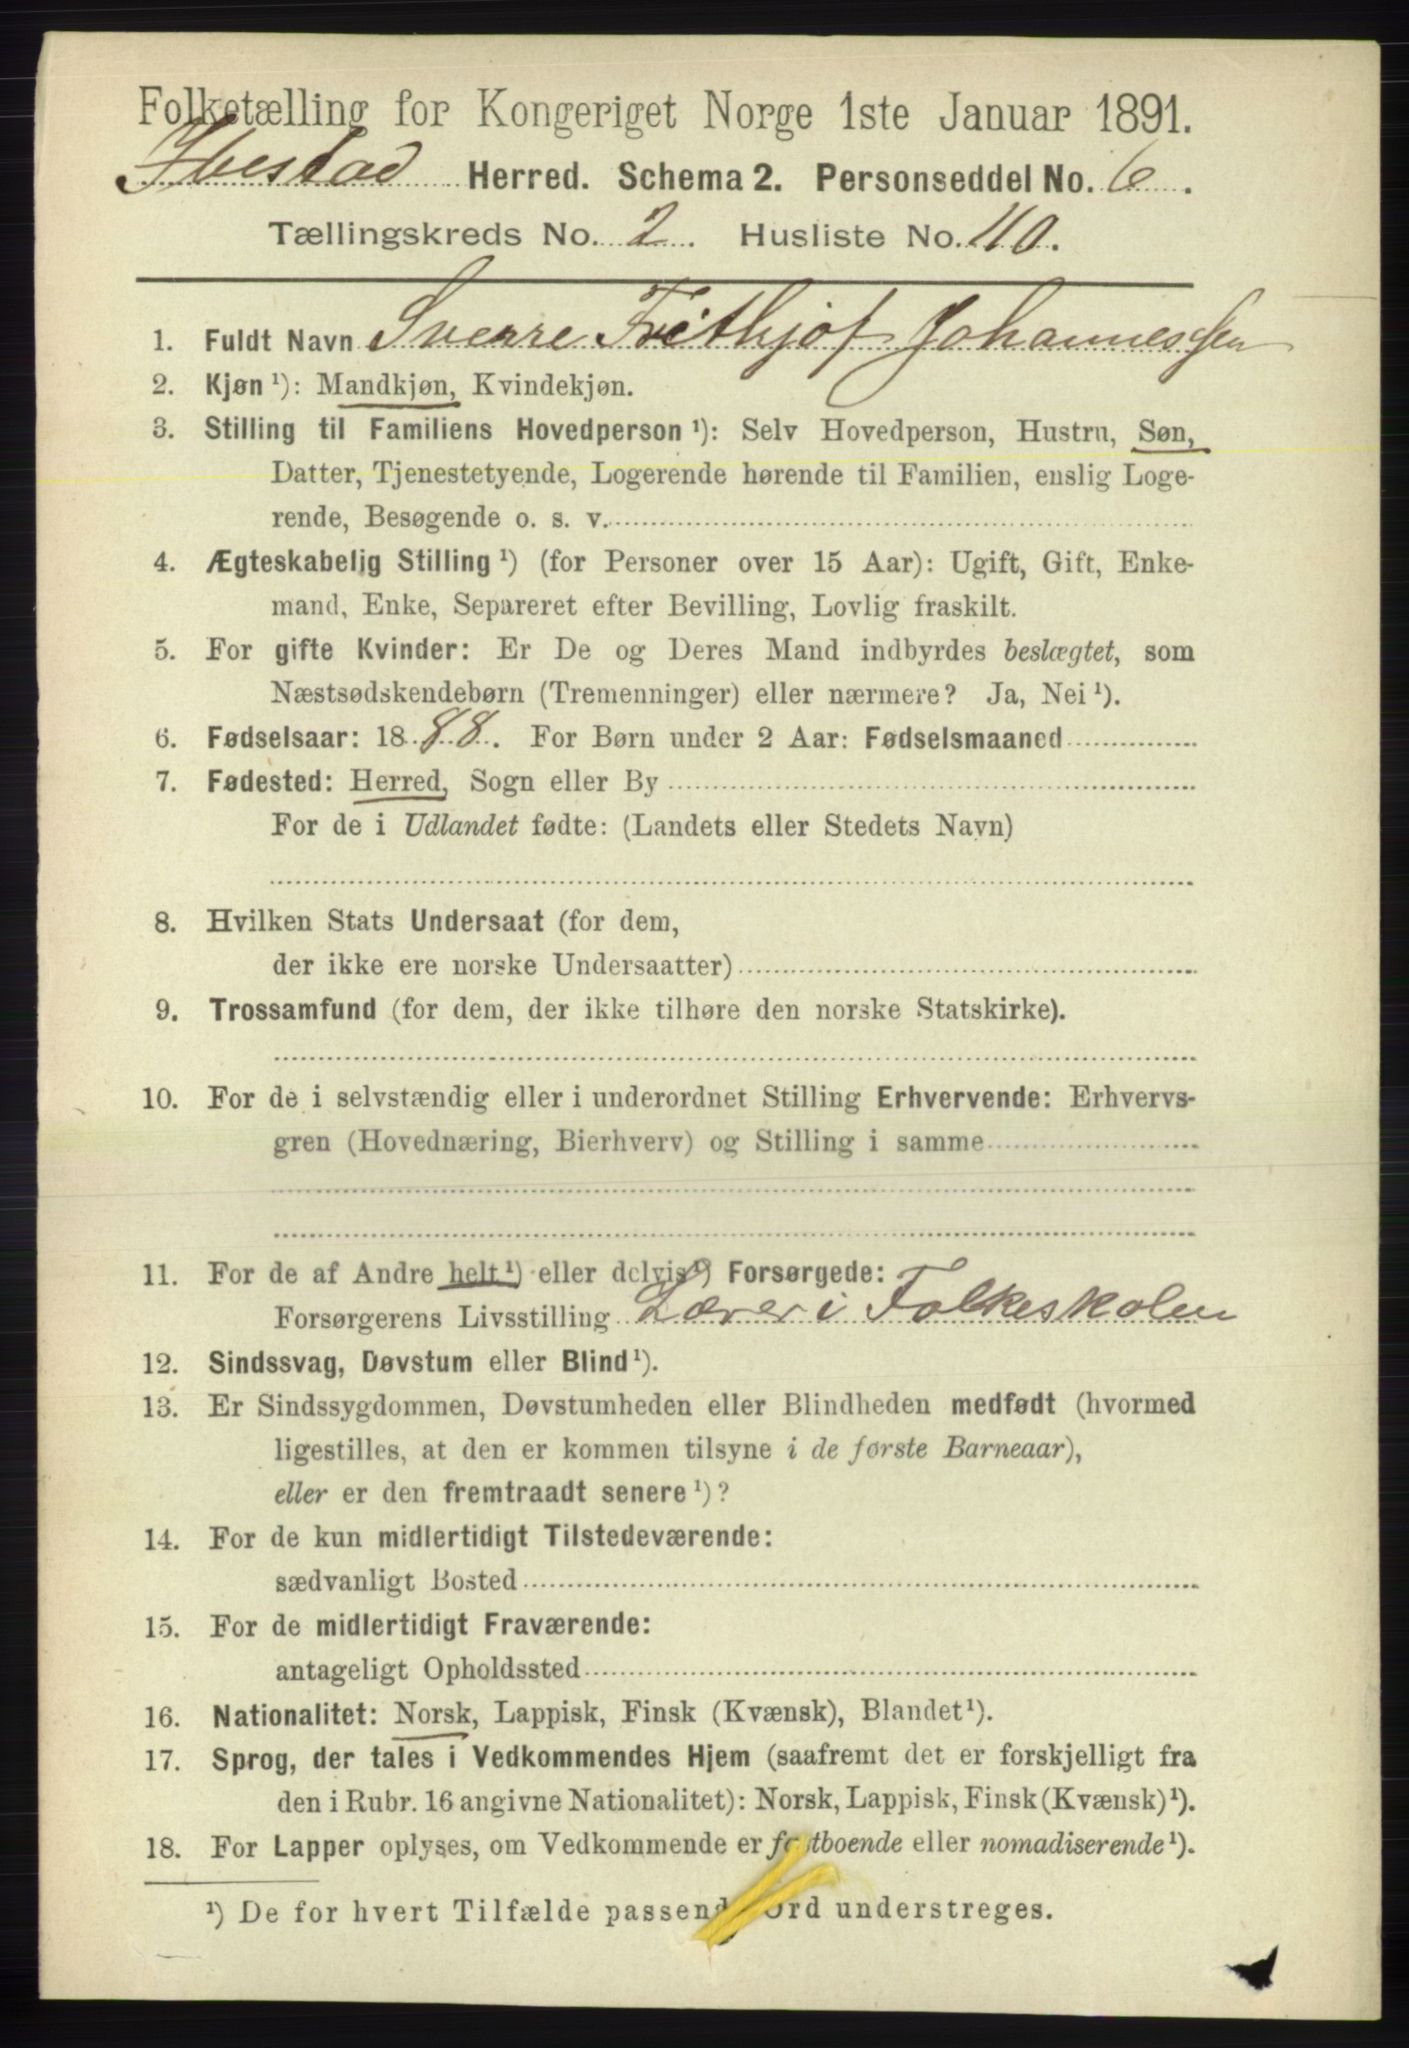 Folketælling for Kongeriget Norge 1ste Januar 1891.
Ibestad Herred. Schema 2. Personseddel No. 6.
Tællingskreds No. 2. Husliste No. 110.
1. Fuldt Navn Sverre Frithjof Johannessen
2. Kjøn ¹): Mandkjøn, Kvindekjøn.
3. Stilling til Familiens Hovedperson ¹): Selv Hovedperson, Hustru, Søn,
Datter, Tjenestetyende, Logerende hørende til Familien, enslig Loge-
rende, Besøgende o. s. v.
4. Ægteskabelig Stilling ¹) (for Personer over 15 Aar): Ugift, Gift, Enke-
mand, Enke, Separeret efter Bevilling, Lovlig fraskilt.
5. For gifte Kvinder: Er De og Deres Mand indbyrdes beslægtet, som
Næstsødskendebørn (Tremenninger) eller nærmere? Ja, Nei ¹).
6. Fødselsaar: 1888. For Børn under 2 Aar: Fødselsmaaned
7. Fødested: Herred, Sogn eller By
For de i Udlandet fødte: (Landets eller Stedets Navn)
8. Hvilken Stats Undersaat (for dem,
der ikke ere norske Undersaatter)
9. Trossamfund (for dem, der ikke tilhøre den norske Statskirke).
10. For de i selvstændig eller i underordnet Stilling Erhvervende: Erhvervs-
gren (Hovednæring, Bierhverv) og Stilling i samme
11. For de af Andre helt ¹) eller delvis ¹) Forsørgede:
Forsørgerens Livsstilling Lærer i Folkeskolen
12. Sindssvag, Døvstum eller Blind ¹).
13. Er Sindssygdommen, Døvstumheden eller Blindheden medfødt (hvormed
ligestilles, at den er kommen tilsyne i de første Barneaar),
eller er den fremtraadt senere ¹)?
14. For de kun midlertidigt Tilstedeværende:
sædvanligt Bosted
15. For de midlertidigt Fraværende:
antageligt Opholdssted
16. Nationalitet: Norsk, Lappisk, Finsk (Kvænsk), Blandet ¹).
17. Sprog, der tales i Vedkommendes Hjem (saafremt det er forskjelligt fra
den i Rubr. 16 angivne Nationalitet): Norsk, Lappisk, Finsk (Kvænsk) ¹).
18. For Lapper oplyses, om Vedkommende er fastboende eller nomadiserende ¹).
¹) De for hvert Tilfælde passende Ord understreges.